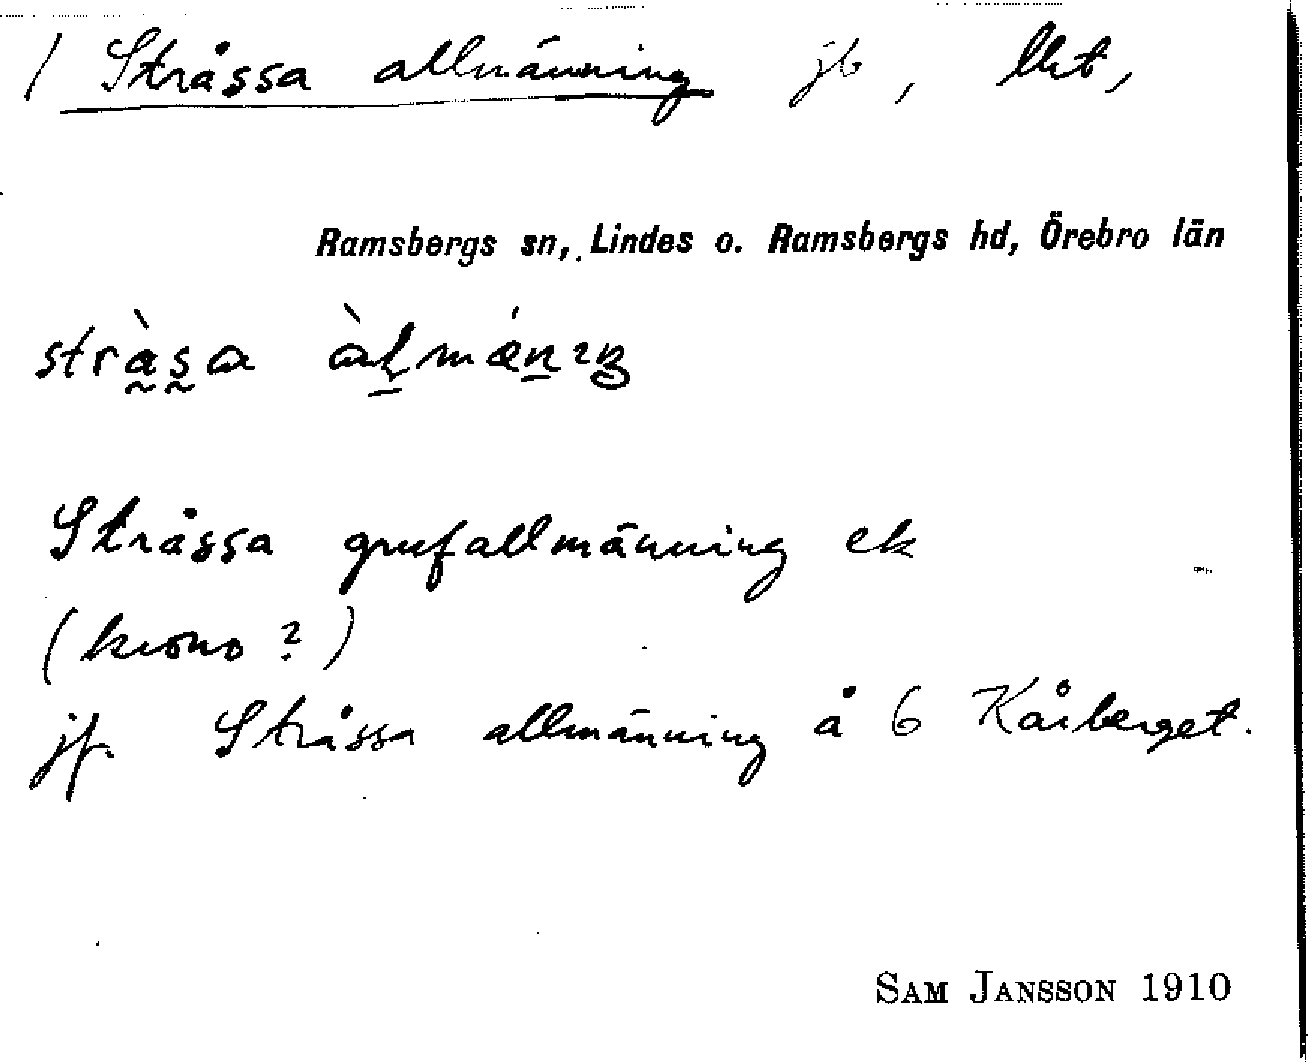 / Stråssa allmänning jb, Ukt,
Ramsbergs sn, Lindes o. Ramsbergs hd, Örebro län
stràs̰a àl̠mǽn̠ıŋ
Stråssa grufallmänning ek
(krono?)
jfr Stråssa allmänning å 6 Kårberget.
SAM JANSSON 1910